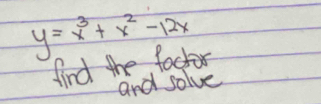 y = x³ + x² - 12x
find the factor
and solve